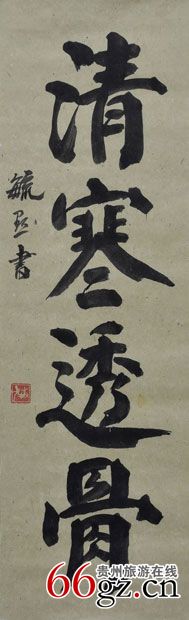 清寒透骨
毓㷧書
贵州旅游在线
66gz.cn